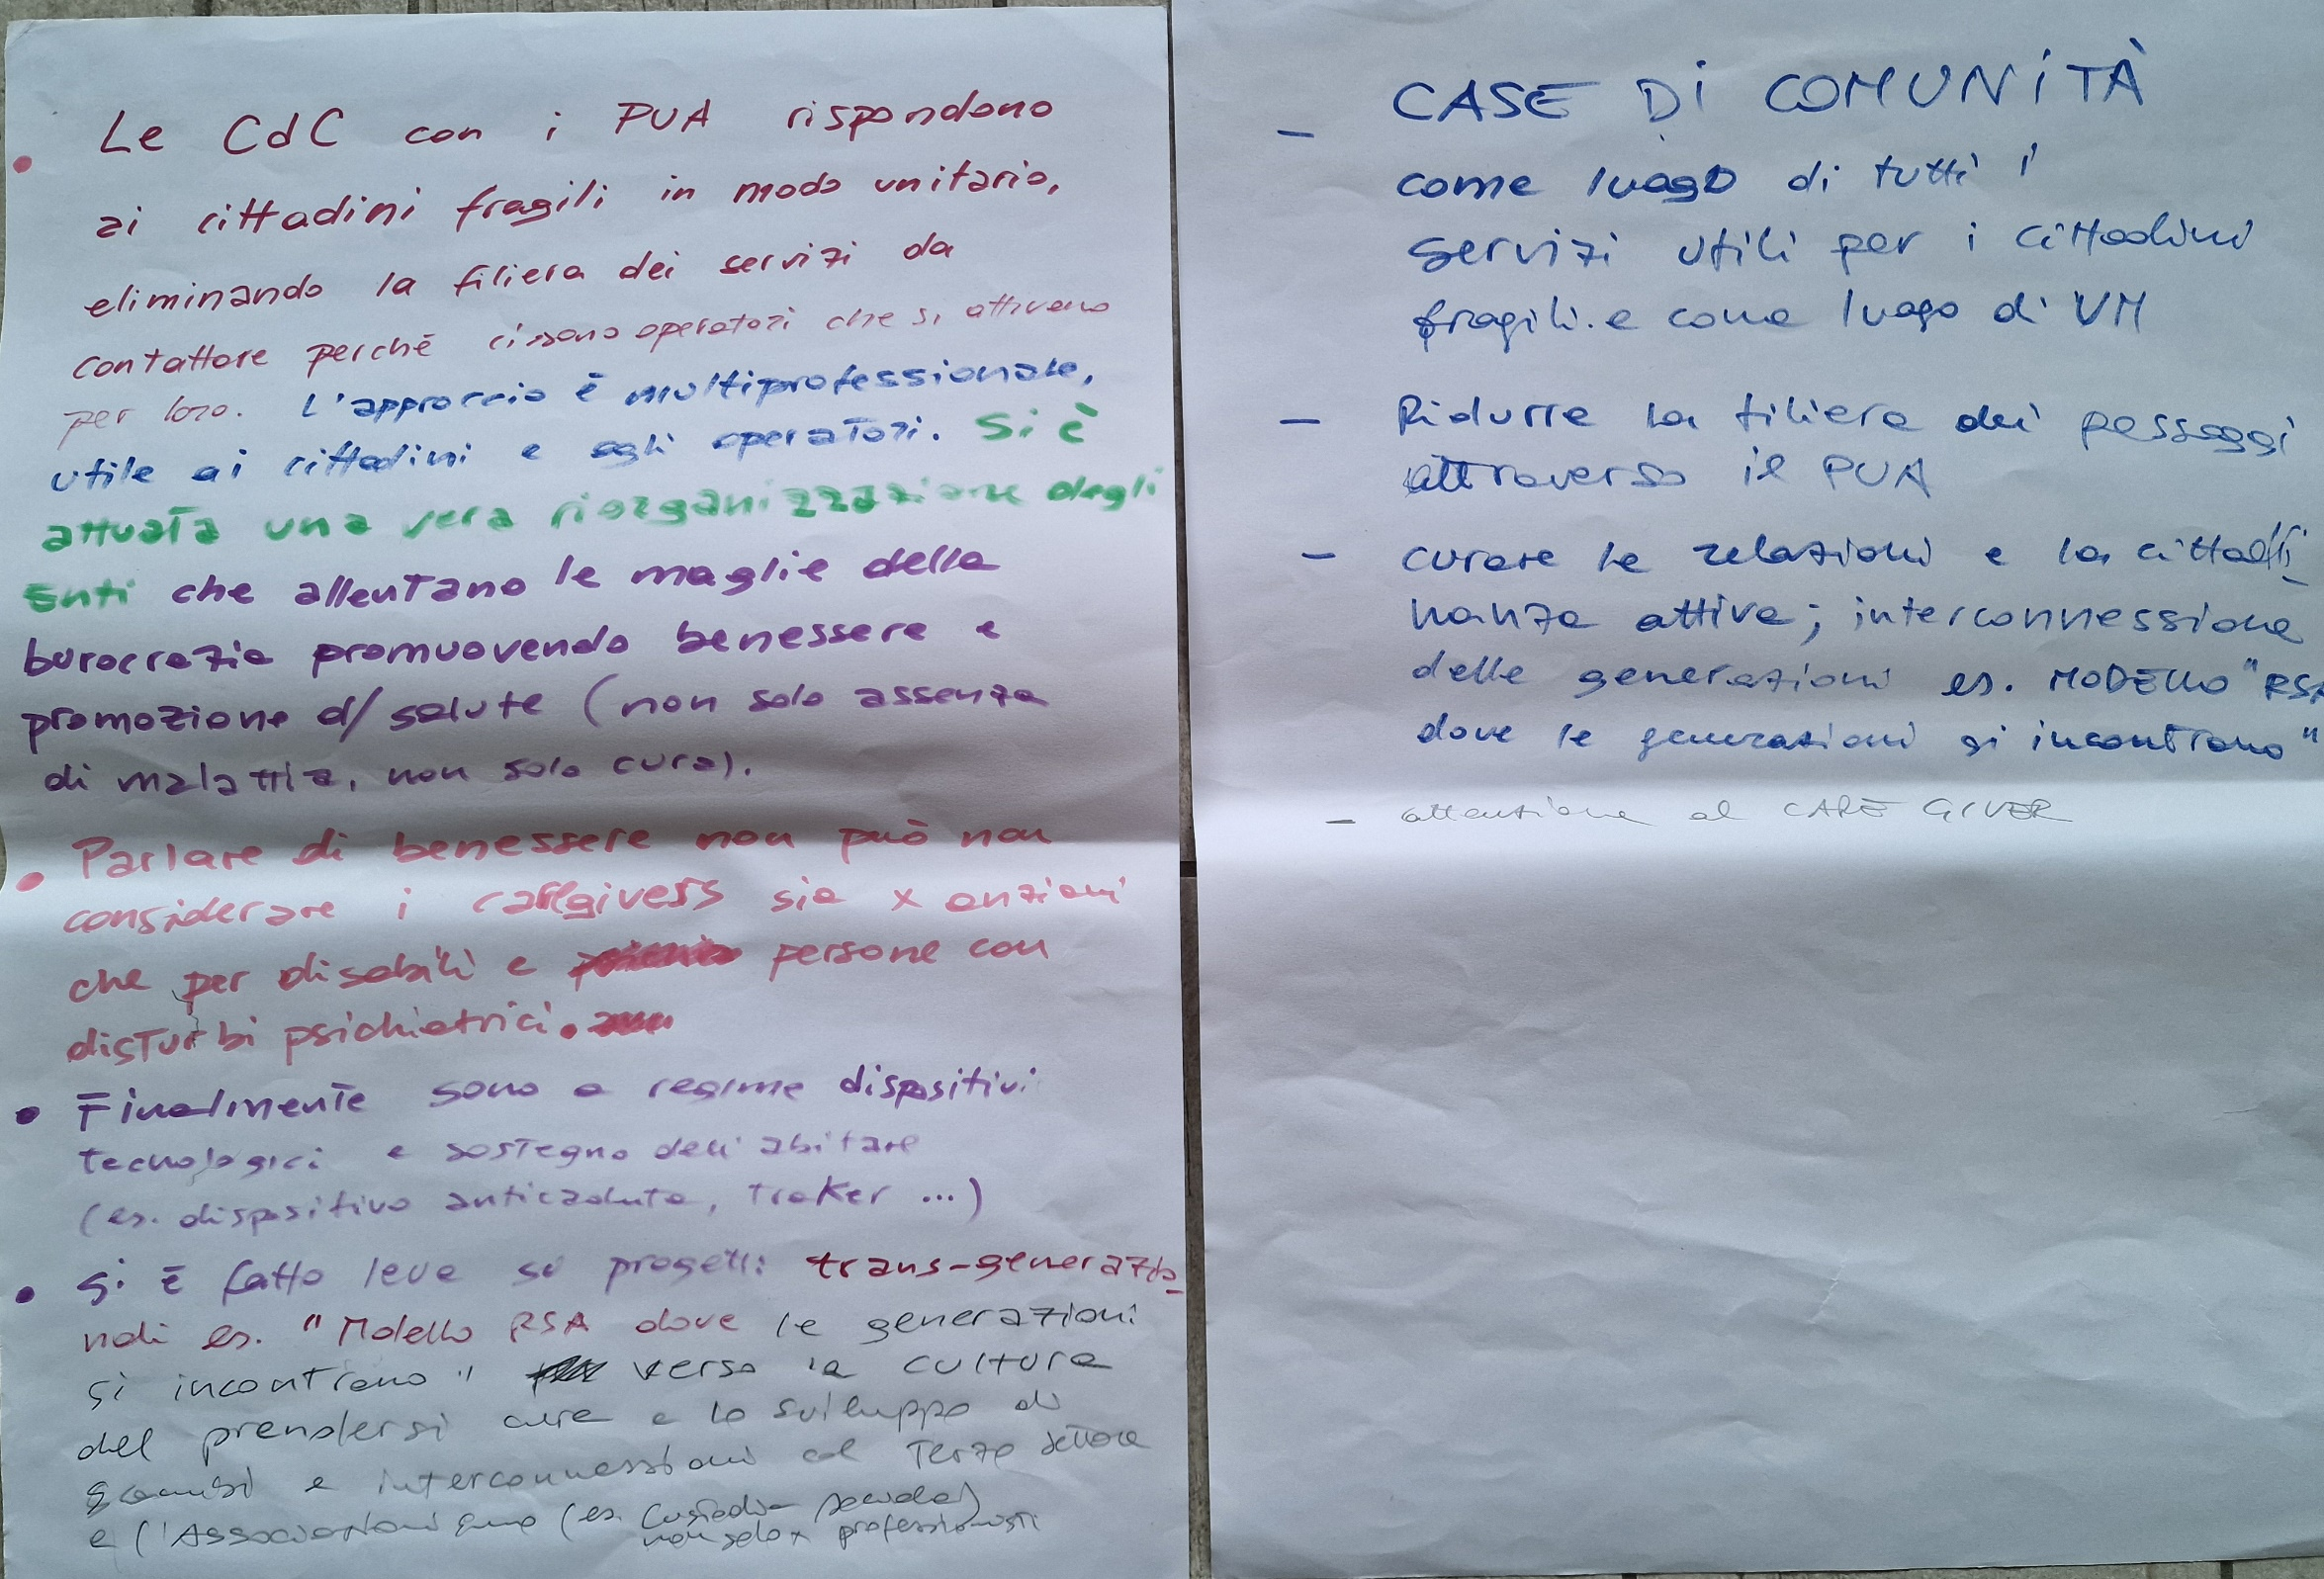 • Le CdC con i PUA rispondono
ai cittadini fragili in modo unitario,
eliminando la filiera dei servizi da
contattare perché ci sono operatori che si attivano
per loro. L'approccio è multiprofessionale,
utile ai cittadini e agli operatori. Si è
attuata una vera riorganizzazione degli
Enti che allentano le maglie della
burocrazia promuovendo benessere e
promozione d/ salute (non solo assenza
di malattia, non solo cura).
• Parlare di benessere non può non
considerare i caregivers sia x anziani
che per disabili e persone con
disturbi psichiatrici.
• Finalmente sono a regime dispositivi
tecnologici e sostegno dell'abitare
(es. dispositivo anticaduta, traker ...)
• Si è fatto leva su progetti trans-generazio_
nali es. "Modello RSA dove le generazioni
si incontrano" verso la cultura
del prendersi cura e lo sviluppo di
scambi e interconnessioni col Terzo settore
e l'Associazionismo (es. Custode sociale)
non solo x professionisti
- CASE DI COMUNITÀ
come luogo di tutti i
servizi utili per i cittadini
fragili. e come luogo di VM
- Ridurre la filiera dei passaggi
attraverso il PUA
- curare le relazioni e la cittadi_
nanza attiva; interconnessione
delle generazioni es. MODELLO "RSA
dove le generazioni si incontrano"
- attenzione al CARE GIVER